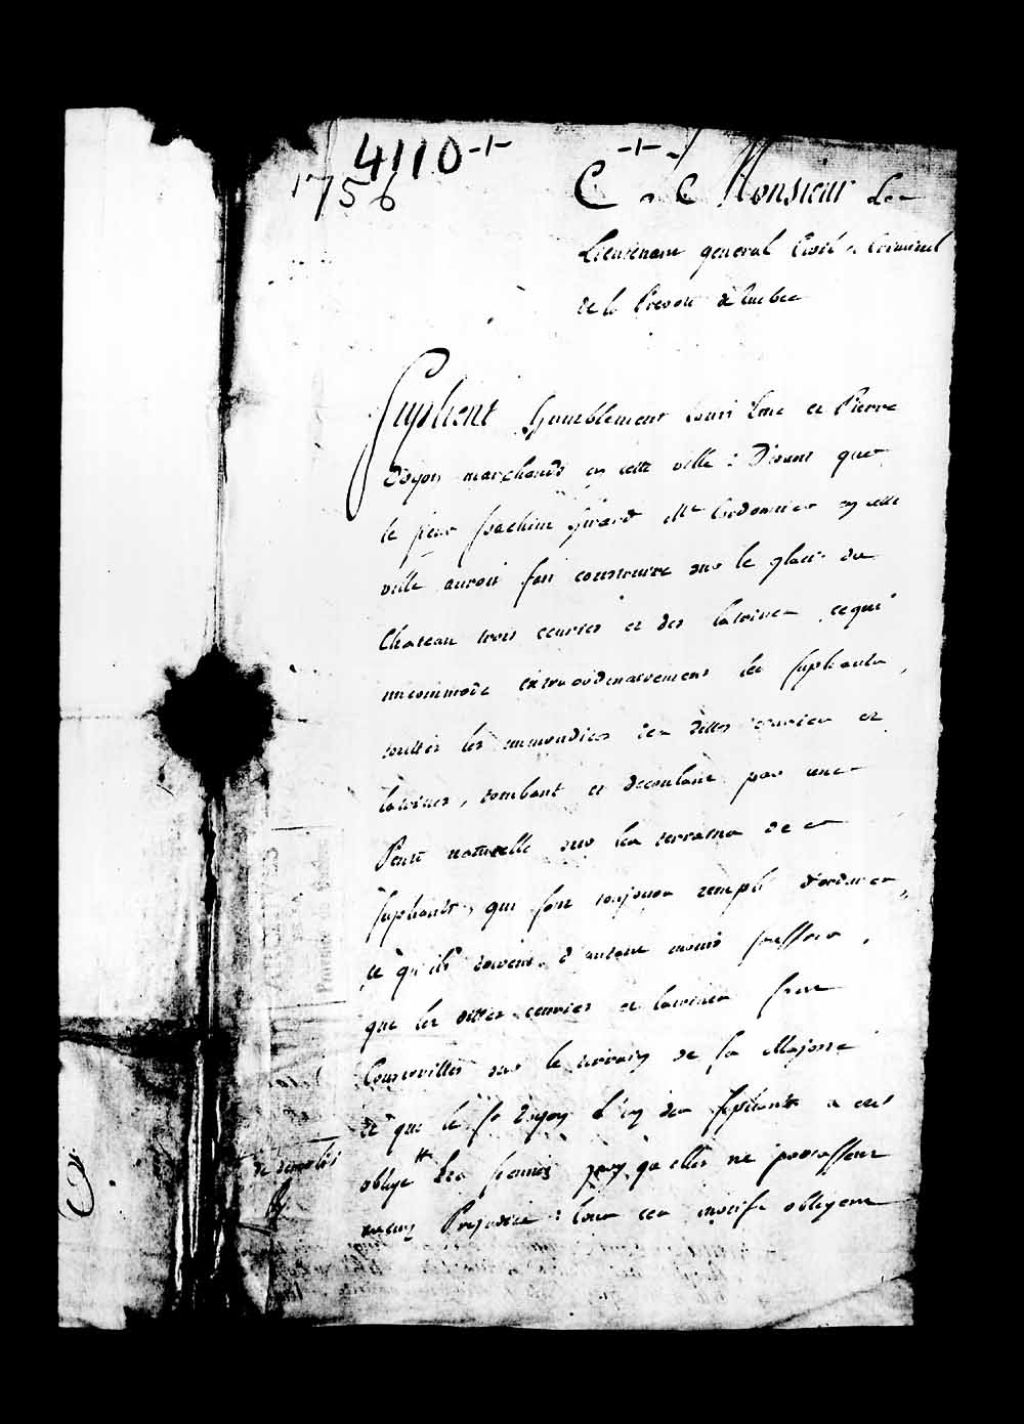 4110
1756
A Monsieur Le
Lieutenant general Civil et Criminel
de la Prevoté de Quebec
Suplient humblement Louis et Pierre
Dryon marchands en cette ville : Disant que
le sieur Joachim Girard Me Cordonnier en cette
ville auroit fait construire sur le glacis du
Chateau trois ecuries et des latrines, ce qui
incommode extraordinairement les suplians,
toutes les immondices des dittes ecuries et
latrines, tombant et decoulant par une
Pente naturelle sur les terrasses de ces
suplians, qui sont toujours remplis d'ordures,
ce qu'ils doivent d'autant moins souffrir,
que les dittes ecuries et latrines sont
Construittes sur le terrain de sa Majesté
et que le sr Dryon l'un des supliants a eté
obligé les siennes qu'elles ne portassent
aucun Prejudice : tous ces motifs obligent
de demolir